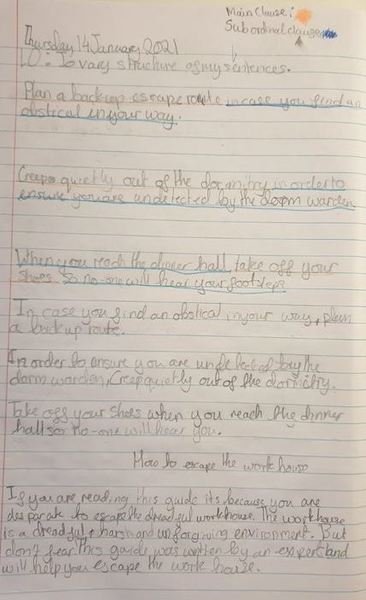 Main Clause:
Subordinal clause
Thursday 14 January 2021
LO: To vary structure of my sentences.
Plan a backup escape route in case you find an
obstical in your way.
Creep quietly out of the in order to
ensure you are undetected by the dorm warden
When you reach the dinner hall take off your
shoes so no-one will hear your footsteps
In case you find an obstical in your way, plan
a backup route.
In order to ensure you are undetected by the
dorm warden, Creep quietly out of the
Take off your shoes when you reach the dinner
hall so no-one will hear you.
How to escape the work house
If you are reading this guide its because you are
desparate to escape the dreadful workhouse. The workhouse
is a dreadful, harsh and unforgiving environment. But
don't fear. This guide was written by an expert and
will help you escape the work house.